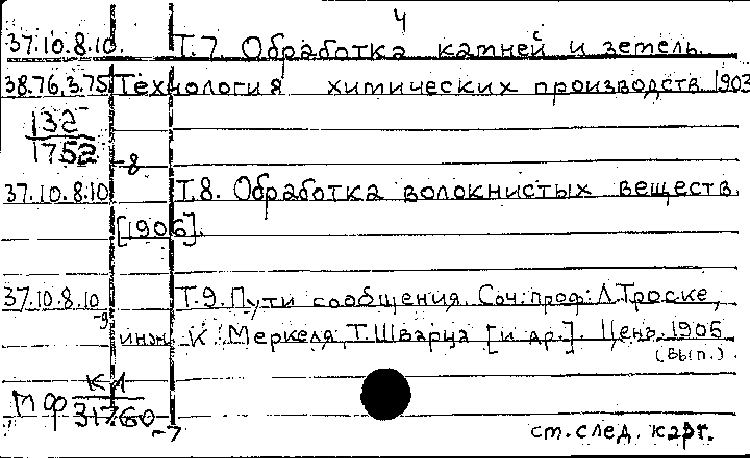 4
37.10.8.10. Т.7. Обработка камней и земель.
38.76.3.75 Технология химических производств 1903
132
1752
-8
37.10.8.10 Т.8. Обработка волокнистых веществ.
[1906].
37.10.8.10 Т.9. Пути сообщения. Соч: проф: Л. Троске,
-9 инж. К. Меркеля, Т. Шварца [и др.]. 1905
(вып.).
МФ КЛ
31760-7
см. след. карт.